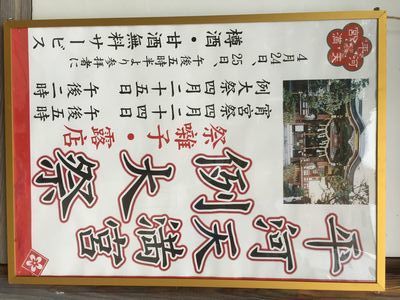 平河天満宮
例大祭
祭囃子・露店
宵宮祭 四月二十四日 午後五時
例大祭 四月二十五日 午後二時
4月24日、25日、午後五時半より参拝者に
樽酒・甘酒無料サービス
平河天満宮